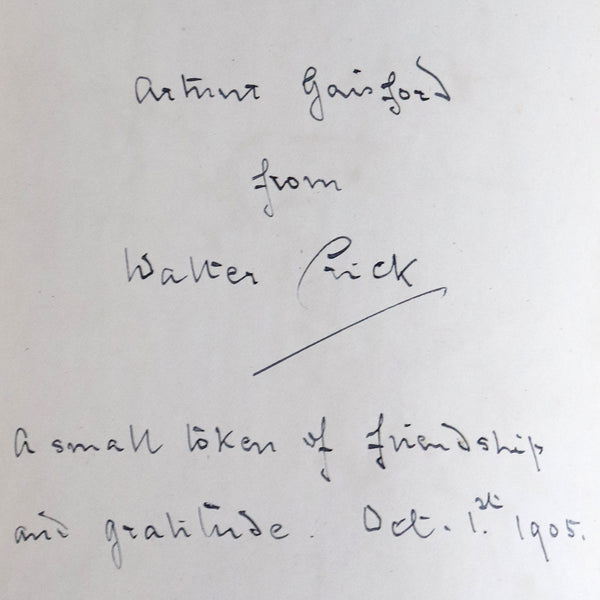 Arthur Gaisford
from
Walter Crick
A small token of friendship
and gratitude. Oct. 1.st 1905.